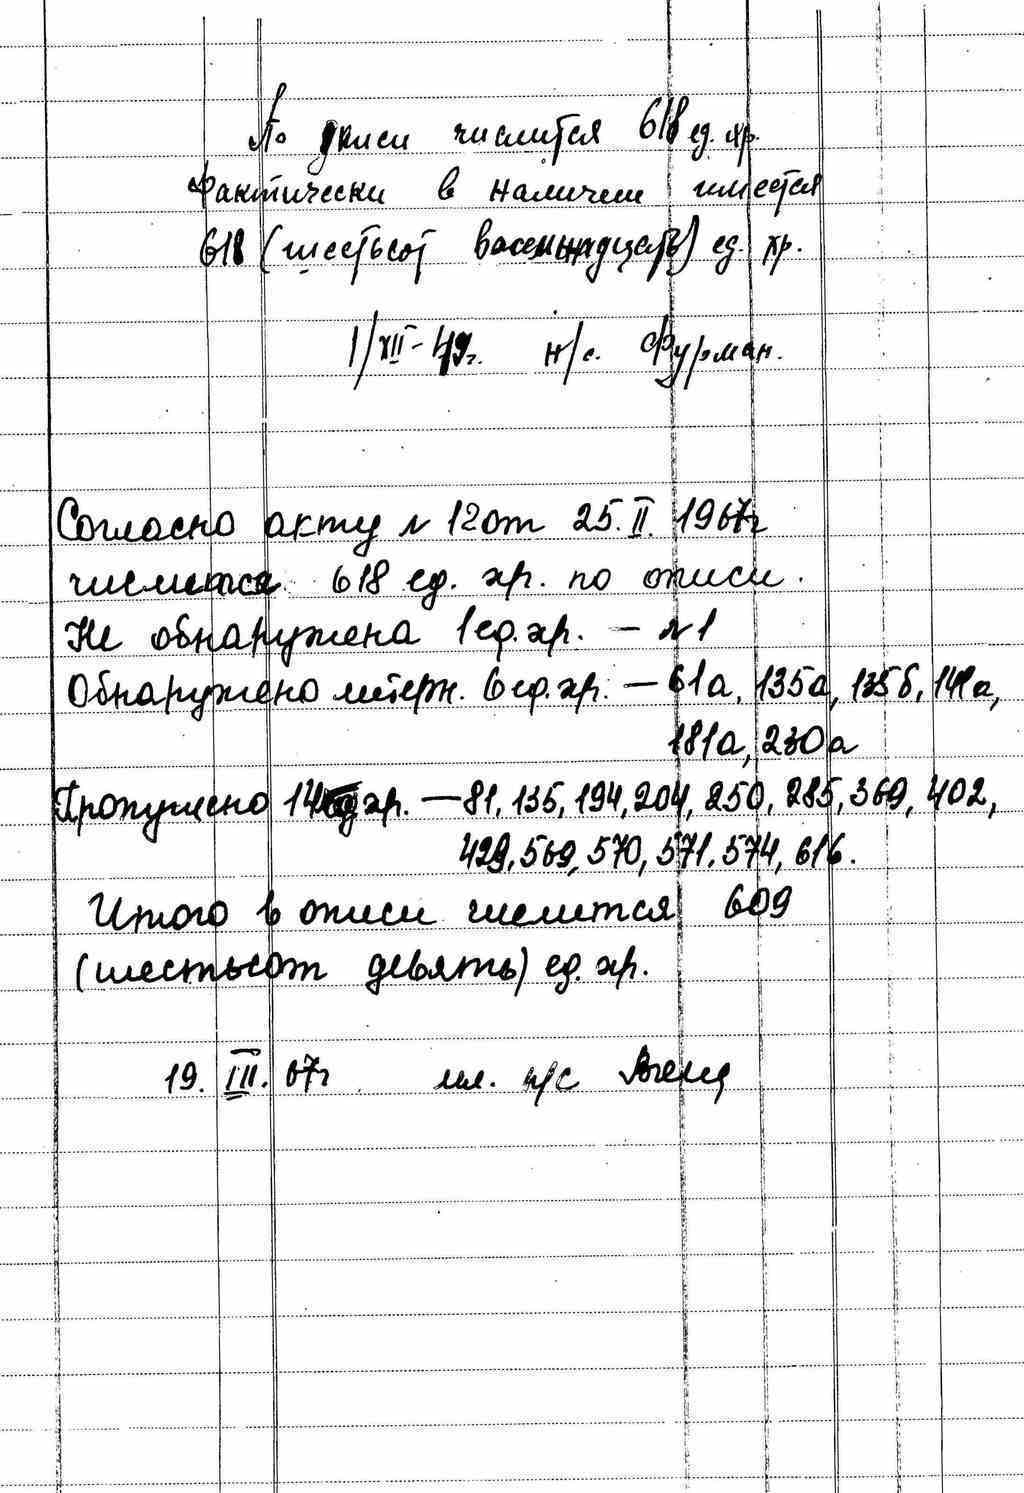 По описи числится 618 ед. хр.
Фактически в наличии имеется
618 (шестьсот восемнадцать) ед. хр.
1/XII-49г. н/с. Фурман.
Согласно акту № 12 от 25.II. 1967г
числится 618 ед. хр. по описи.
Не обнаружена 1 ед. хр. — №1
Обнаружено литерн. 6 ед. хр. — 61а, 135а, 135б, 141а,
181а, 230а
Пропущено 14 ед. хр. — 81, 135, 194, 204, 250, 285, 369, 402,
429, 569, 570, 571, 574, 616.
Итого в описи числится 609
(шестьсот девять) ед. хр.
19. III. 67г мл. н/с